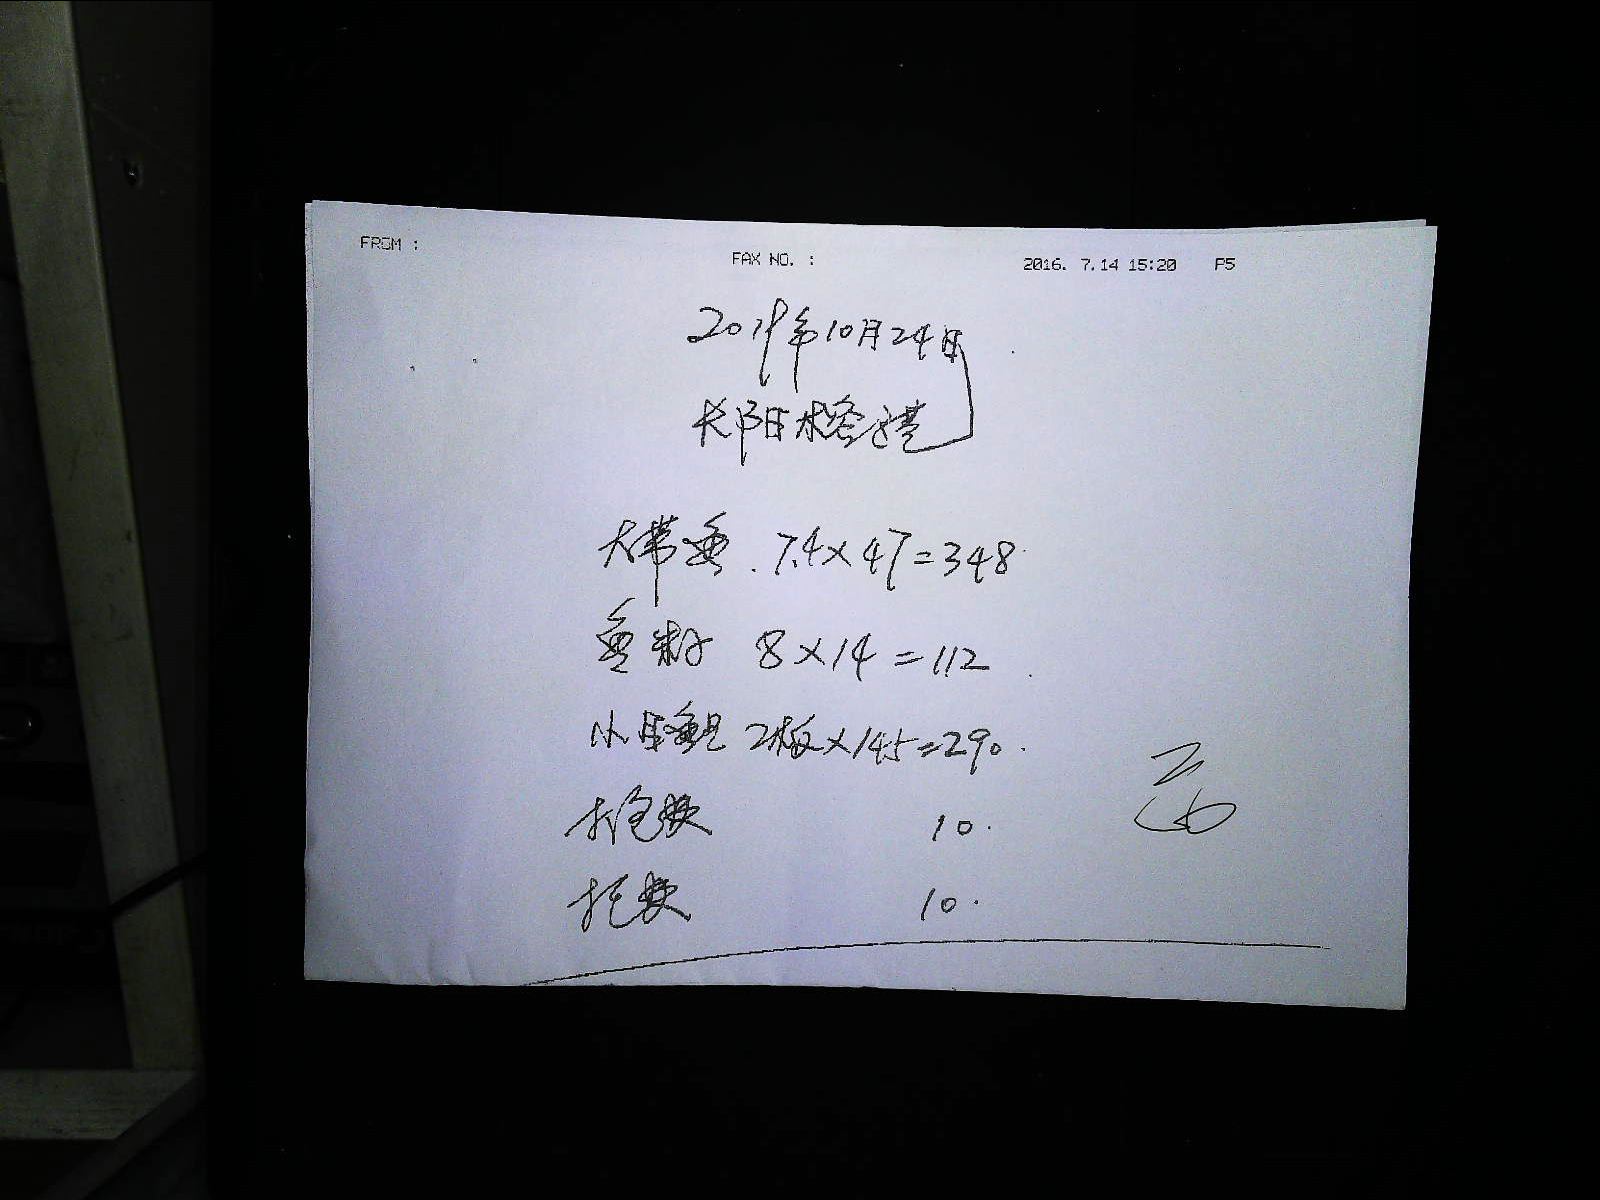 FROM :
FAX NO. :
2016. 7.14 15:20 P5
2019年10月24日
长阳榕港
大带鱼. 7.4×47=348
鱼籽 8×14=112
小 2板×145=290.
10.
10.